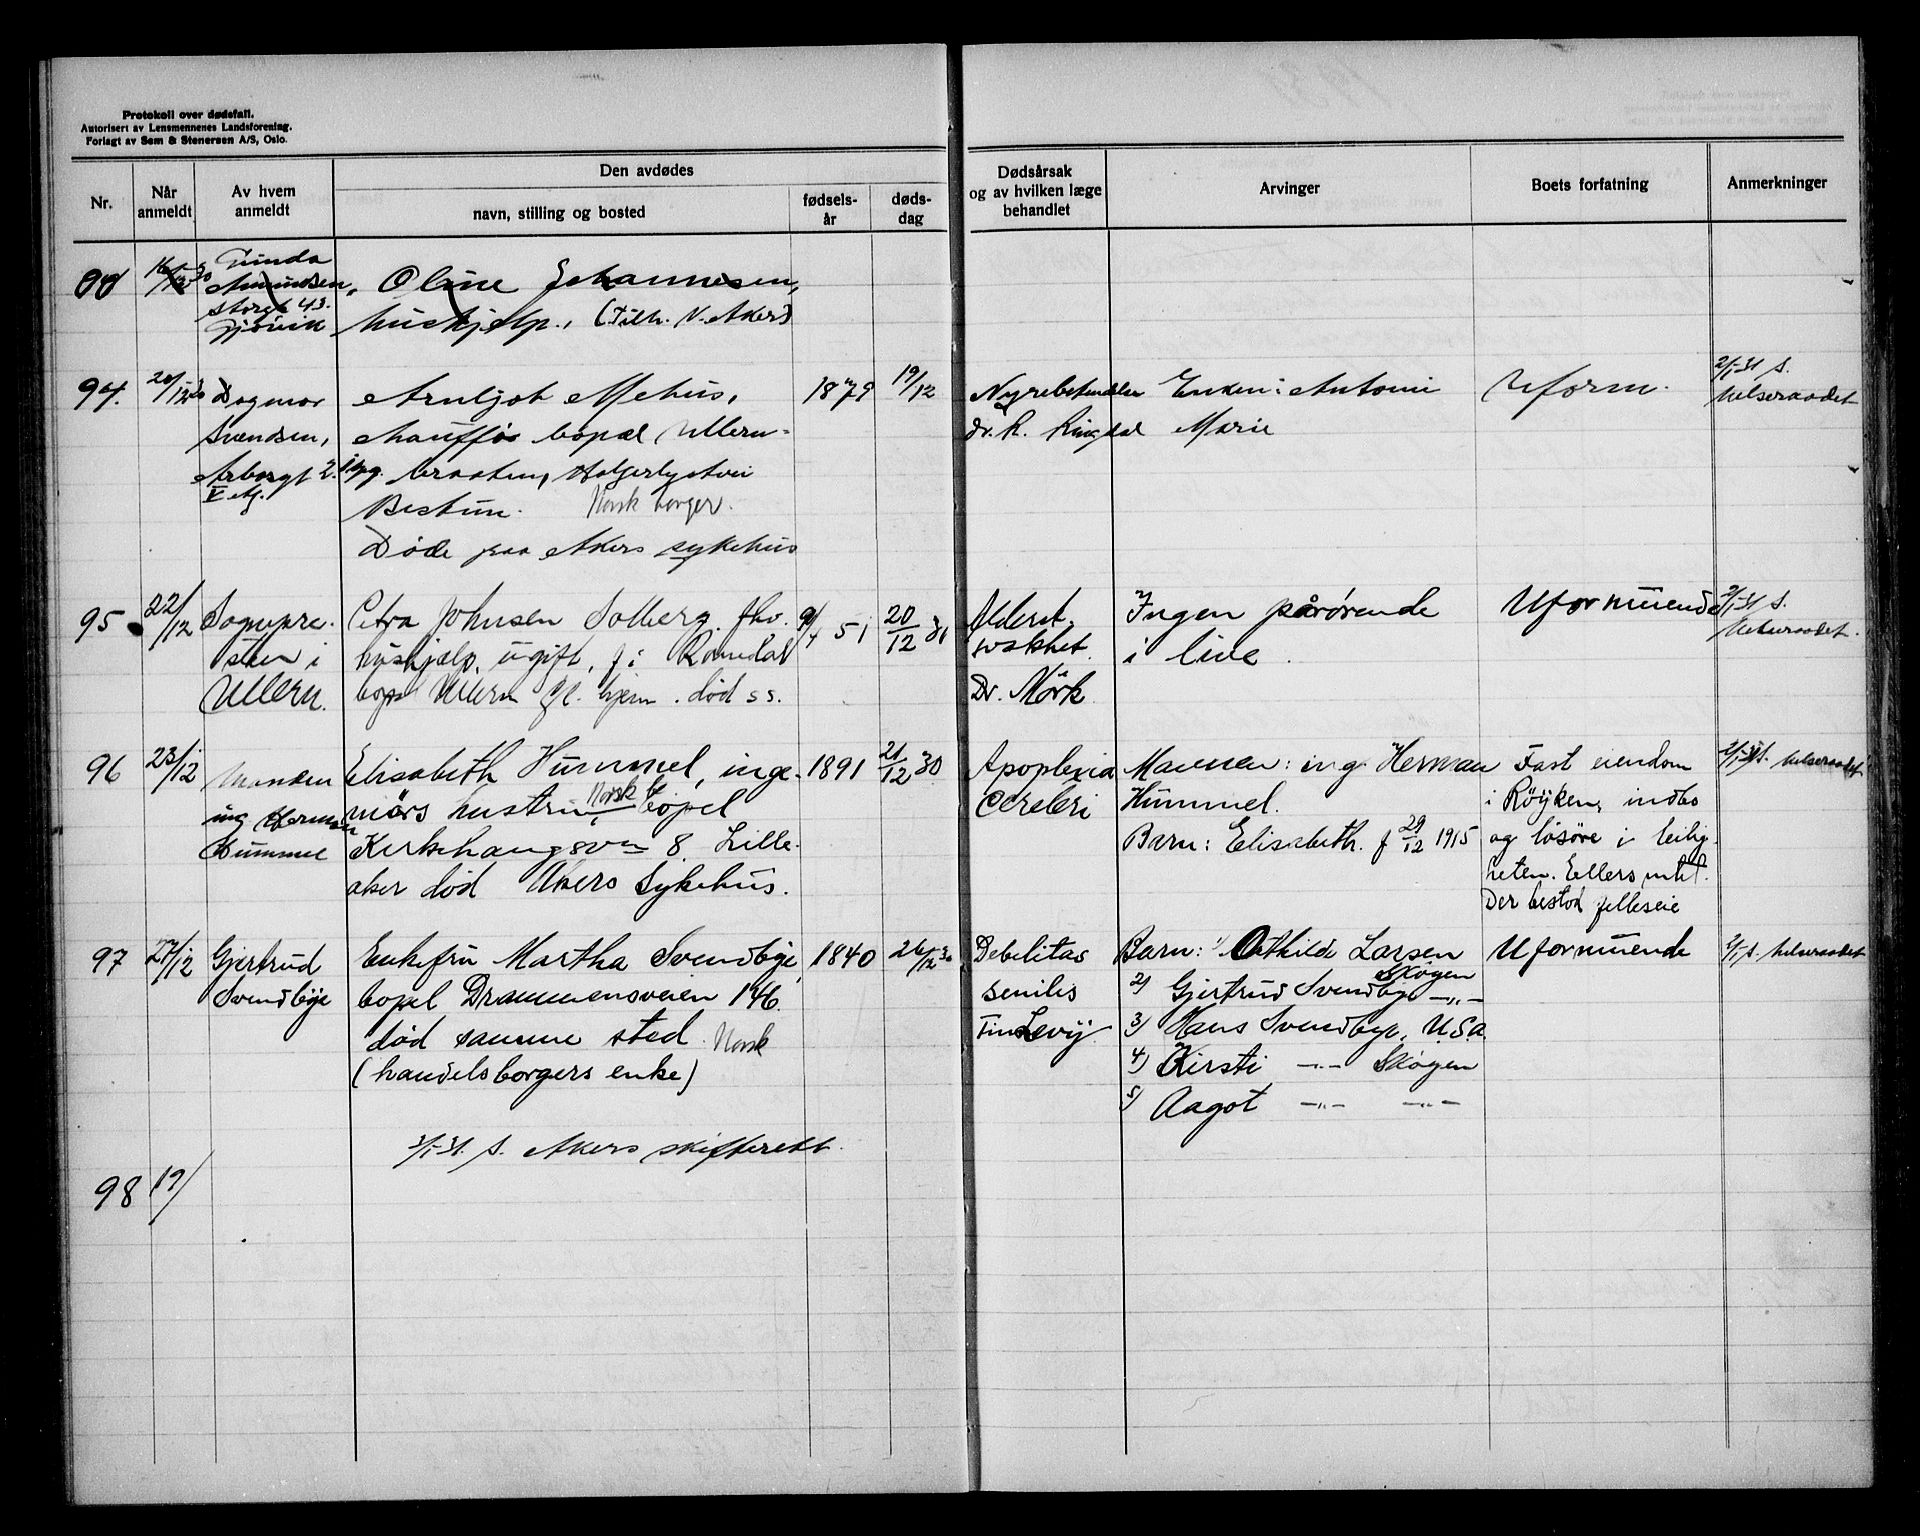 Protokoll over dødsfall.
Autorisert av Lensmennenes Landsforening.
Forlagt av Sem & Stenersen A/S, Oslo.
Nr.
Når anmeldt
Av hvem anmeldt
Den avdødes
navn, stilling og bosted
fødsels-år
døds-dag
Dødsårsak og av hvilken læge behandlet
Arvinger
Boets forfatning
Anmerkninger
Amundsen,
Storgt 43.
Gjövik
Oline Johannesen,
huskjelp., (Tilh. V. Aker)
94.
20/12 30
Dagmar
Svendsen,
Arborgt 2.
V etg.
Arnljot Mehus,
chauffør bopæl Ullern-
braaten, Holgerlystvei
Bestun. Norsk borger.
Døde paa Akers sykehus
1879
19/12
Nyrebetendelse
dr. R. Ringdal
Enken: Antonie
Marie
Uform.
2/1-31 S.
helseraadet
95
22/12
Sognepre-
sten i
Ullern.
Petra Johnsen Solberg. fhv.
hushjælp, ugift, f i Romedal
bopæl Ullern gl. hjem. død ss.
9/4 51
20/12 30
Alderd.
svakhet.
Dr. Mörk
Ingen pårørende
i live.
Uformuende
2/1-31 S.
helseraadet.
96
23/12
Manden
ing Herman
Hummel
Elisabeth Hummel, inge-
niörs hustru, Norsk bopel
Kirkehaugsvn 8. Lille-
aker död Akers Sykehus.
1891
21/12 30
Apoplexia
cerebri
Mannen: ing. Herman
Hummel.
Barn: Elisabeth. f 29/12 1915
Fast eiendom
i Röyken, indbo
og lösöre i leilig-
heten. Eellers intet.
Der bestod felleseie
2/1-31 S. helseraadet
97
27/12
Gjertrud
Svendbye
Enkefru Martha Svendbye,
bopel Drammensveien 146.
død samme sted. Norsk
(handelsborgers enke)
1840
26/12 30
Debilitas
senilis
Barn: 1) Othilde Larsen
Skögen
2) Gjertrud Svendbye -„-
3) Hans Svendbye, U.S.A.
4) Kirsti -„- Skögen
5) Aagot -„- -„-
Uformuende
2/1 S. helseraadet
2/1-31. S. Akers skifterett.
98
19/